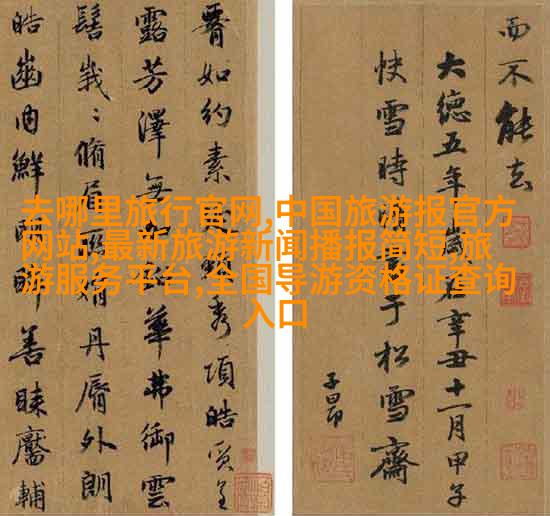 去哪里旅行官网,中国旅游报官方
网站,最新旅游新闻播报简短,旅
游服务平台,全国导游资格证查询
入口
而不能去
大德五年歲在辛丑十一月甲子
快雪時書于松雪齋
子昂
如約素秀項皓質呈
露芳澤無華弗御雲
髻峩〻脩眉娟丹脣外朗
皓齒内鮮明眸善睞靨輔